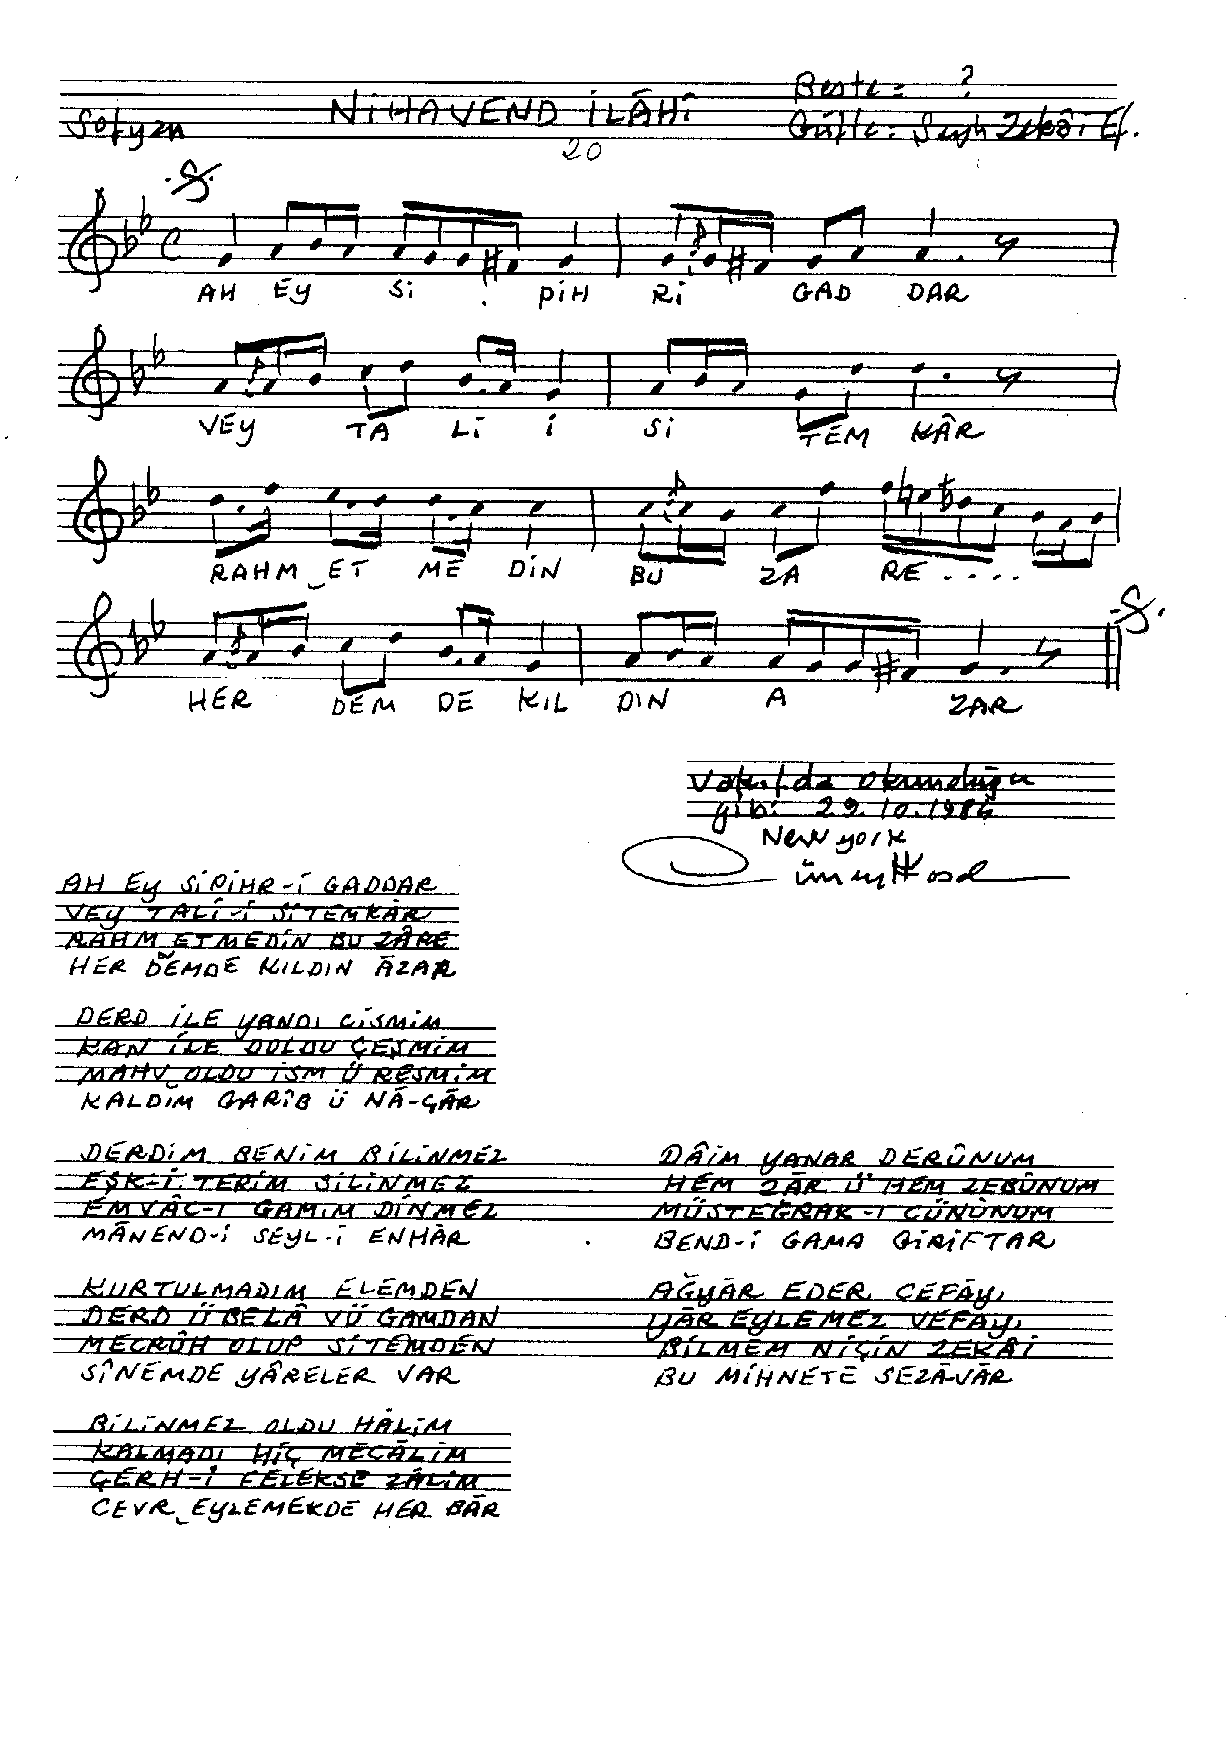 Beste: ?
NİHAVEND İLÂHÎ
Sofyan
Güfte: Şeyh Zekâi Ef.
20
AH EY Sİ PİH Rİ GAD DAR
VEY TA Lİ İ Sİ TEM KÂR
RAHM ET ME DİN BU ZA RE ....
HER DEM DE KIL DIN A ZAR
Vakıfda okunduğu
gibi 29.10.1984
New york
AH EY SİPİHR-İ GADDAR
VEY TALİ-İ SİTEMKÂR
RAHM ETMEDİN BU ZÂRE
HER DEMDE KILDIN ÂZAR
DERD İLE YANDI CİSMİM
KAN İLE DOLDU ÇEŞMİM
MAHV OLDU İSM Ü RESMİM
KALDIM GARÎB Ü NÂ-ÇÂR
DERDİM BENİM BİLİNMEZ
EŞK-İ TERİM SİLİNMEZ
EMVÂC-I GAMIM DİNMEZ
MÂNEND-İ SEYL-İ ENHÂR
KURTULMADIM ELEMDEN
DERD Ü BELÂ VÜ GAMDAN
MECRÛH OLUP SİTEMDEN
SÎNEMDE YÂRELER VAR
BİLİNMEZ OLDU HÂLİM
KALMADI HİÇ MECÂLİM
ÇERH-İ FELEKSE ZÂLİM
CEVR EYLEMEKDE HER BÂR
DÂİM YANAR DERÛNUM
HEM ZÂR Ü HEM ZEBÛNUM
MÜSTEĞRAK-I CÜNÛNUM
BEND-İ GAMA GİRİFTAR
AĞYÂR EDER CEFÂYI
YÂR EYLEMEZ VEFÂYI
BİLMEM NİÇİN ZEKÂİ
BU MİHNETE SEZÂ-VÂR